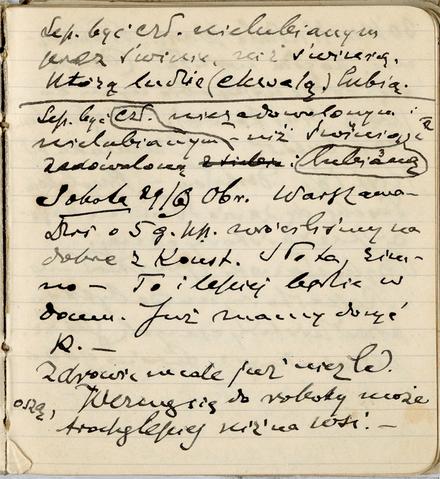 Lep. być czł. nielubianym
przez świnie, niż świnią,
którą ludzie (chwalą) lubią.
Lep. być czł. niezadowolonym i
nielubianym niż świnią
zadowoloną i lubianą
Sobota 29/ Obr. Warszawa—
Dziś o 5 g. pp. wróciliśmy na
dobre z Konst. Słota, zim-
no — To i lepiej będzie w
domu. Już mamy dosyć
K. —
Zdrowie wcale już nieźle.
Wezmę się do roboty może
trochę lepiej niż na wsi. —